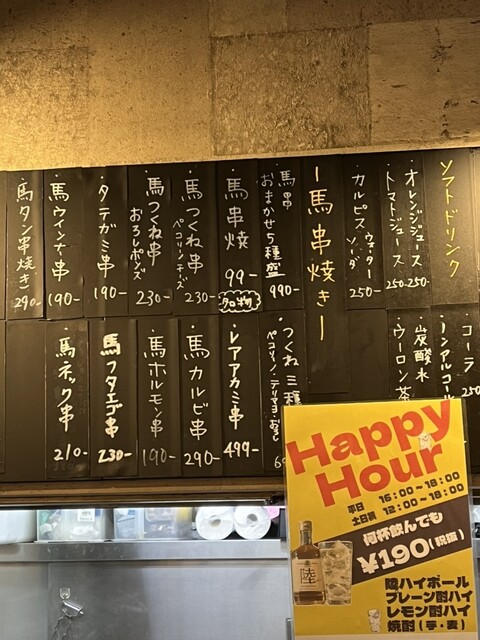 ソフトドリンク
・オレンジジュース 250-
・トマトジュース 250-
・カルピス ウォーター
ソーダ 250-
ー馬串焼きー
・馬串
おまかせ5種盛 990-
・馬串焼 99-
名物
・馬つくね串
ペコリーノチーズ 230-
・馬つくね串
おろしポンズ 230-
・タテガミ串 190-
・馬ウインナー串 190-
・馬タン串焼き 290-
・コーラ 250
・ノンアルコール
・炭酸水
・ウーロン茶
・つくね三種
ペコリーノ・テリマヨ・おろし
・レアアカミ串 499-
・馬カルビ串 290-
・馬ホルモン串 190-
・馬フタエゴ串 230-
・馬ネック串 210-
Happy
Hour
平日 16:00~18:00
土日祝 12:00~18:00
何杯飲んでも
¥190(税抜)
陸ハイボール
プレーン酎ハイ
レモン酎ハイ
焼酎(芋・麦)
陸